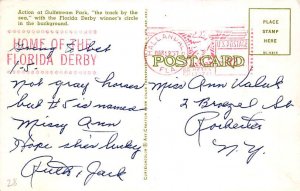 Action at Gulfstream Park, "the track by the
sea," with the Florida Derby winner's circle
in the background.
HOME OF THE
FLORIDA DERBY
Not gray horses
but #5 is named
Missy Ann
Hope she's lucky
Ruth & Jack
28
HALLANDALE
FLA.
U.S. POSTAGE
POST CARD
PLACE
STAMP
HERE
Miss Ann
Rochester
N.Y.